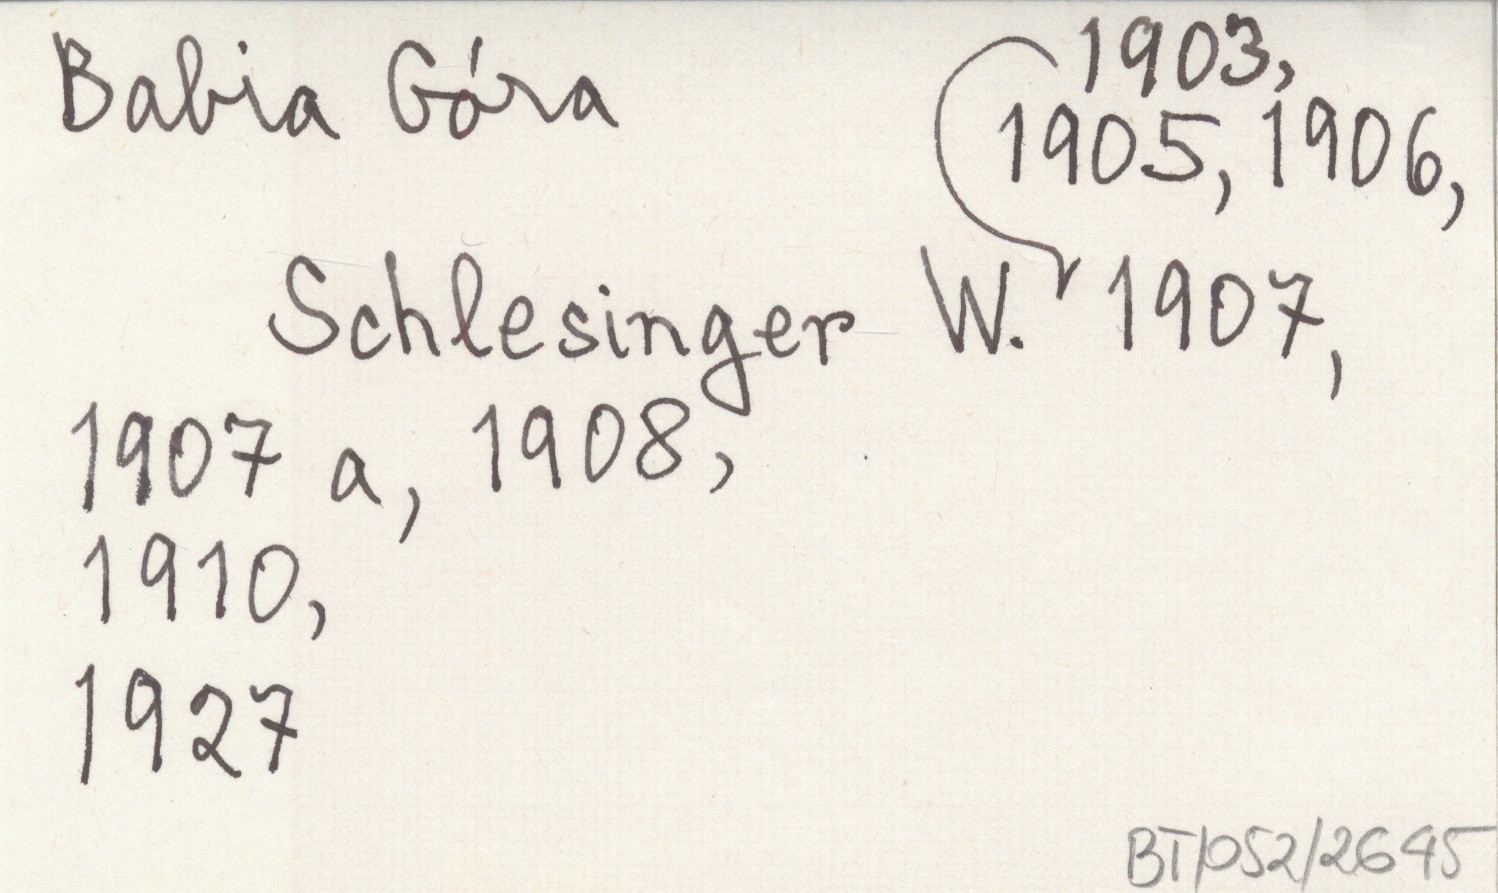 Babia Góra
1903,
1905, 1906,
Schlesinger W. 1907,
1907 a, 1908,
1910,
1927
BT/052/2645